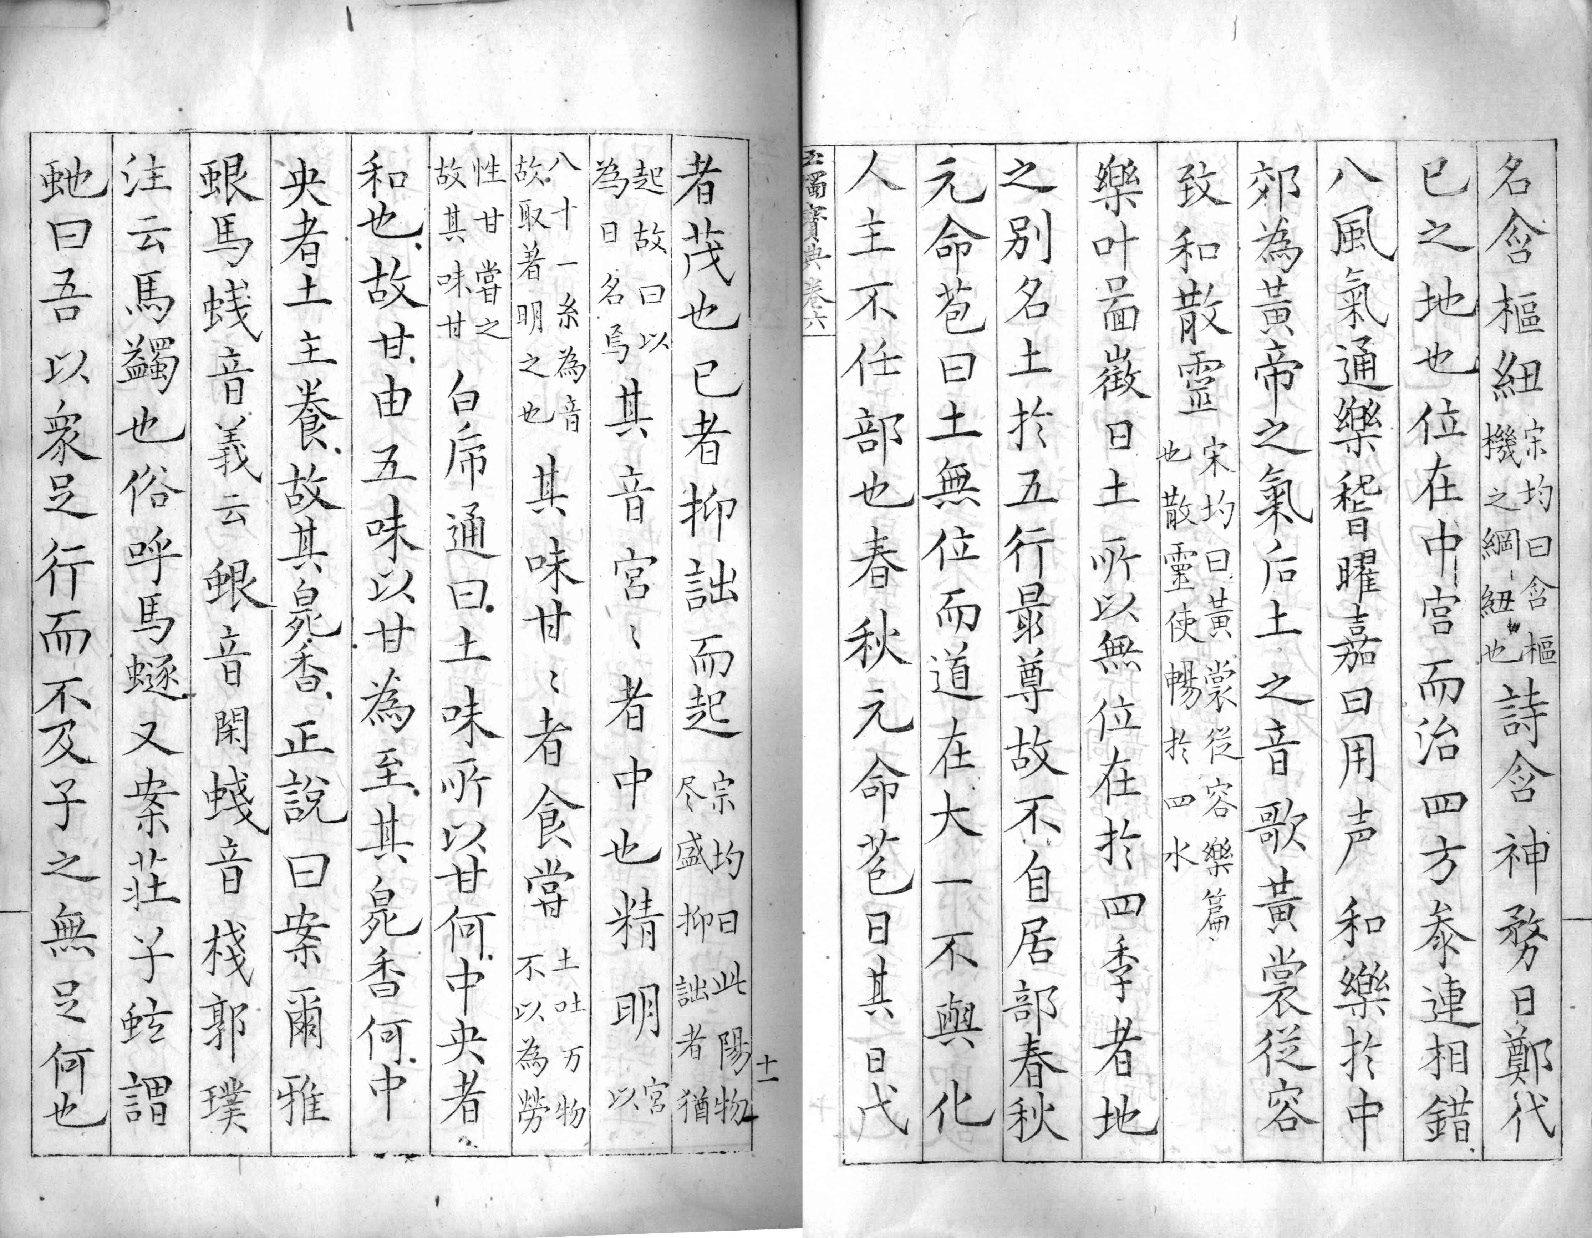 名含樞紐宋均曰含樞機之綱紐也詩含神務曰鄭代
已之地也位在中宮而治四方叅連相錯
八風氣通樂稽曜嘉曰用声和樂於中
郊為黃帝之氣后土之音歌黃裳從容
致和散靈宋均曰黃裳從容樂篇也散靈使暢於四水
樂叶啚徵曰土所以無位在於四季者地
之別名土於五行最尊故不自居部春秋
元命苞曰土無位而道在大一不與化
人主不任部也春秋元命苞曰其日戊
玉燭寶典卷六
十一
者茂也已者抑詘而起宗均曰此陽物尽盛抑詘者猶
起故曰以為日名焉其音宮〻者中也精明宮以
八十一糸為音故取著明之也其味甘〻者食甞土吐万物不以為勞
性甘嘗之故其味甘白席通曰土味所以甘何中央者
和也故甘甘由五味以甘為至其臰香何中
央者土主養故其臰香正說曰案爾雅
蛝馬蛝音義云蛝音閑蝬音棧郭璞
注云馬蠲也俗呼馬蝬又案莊子蚿謂
虵曰吾以衆足行而不及子之無足何也